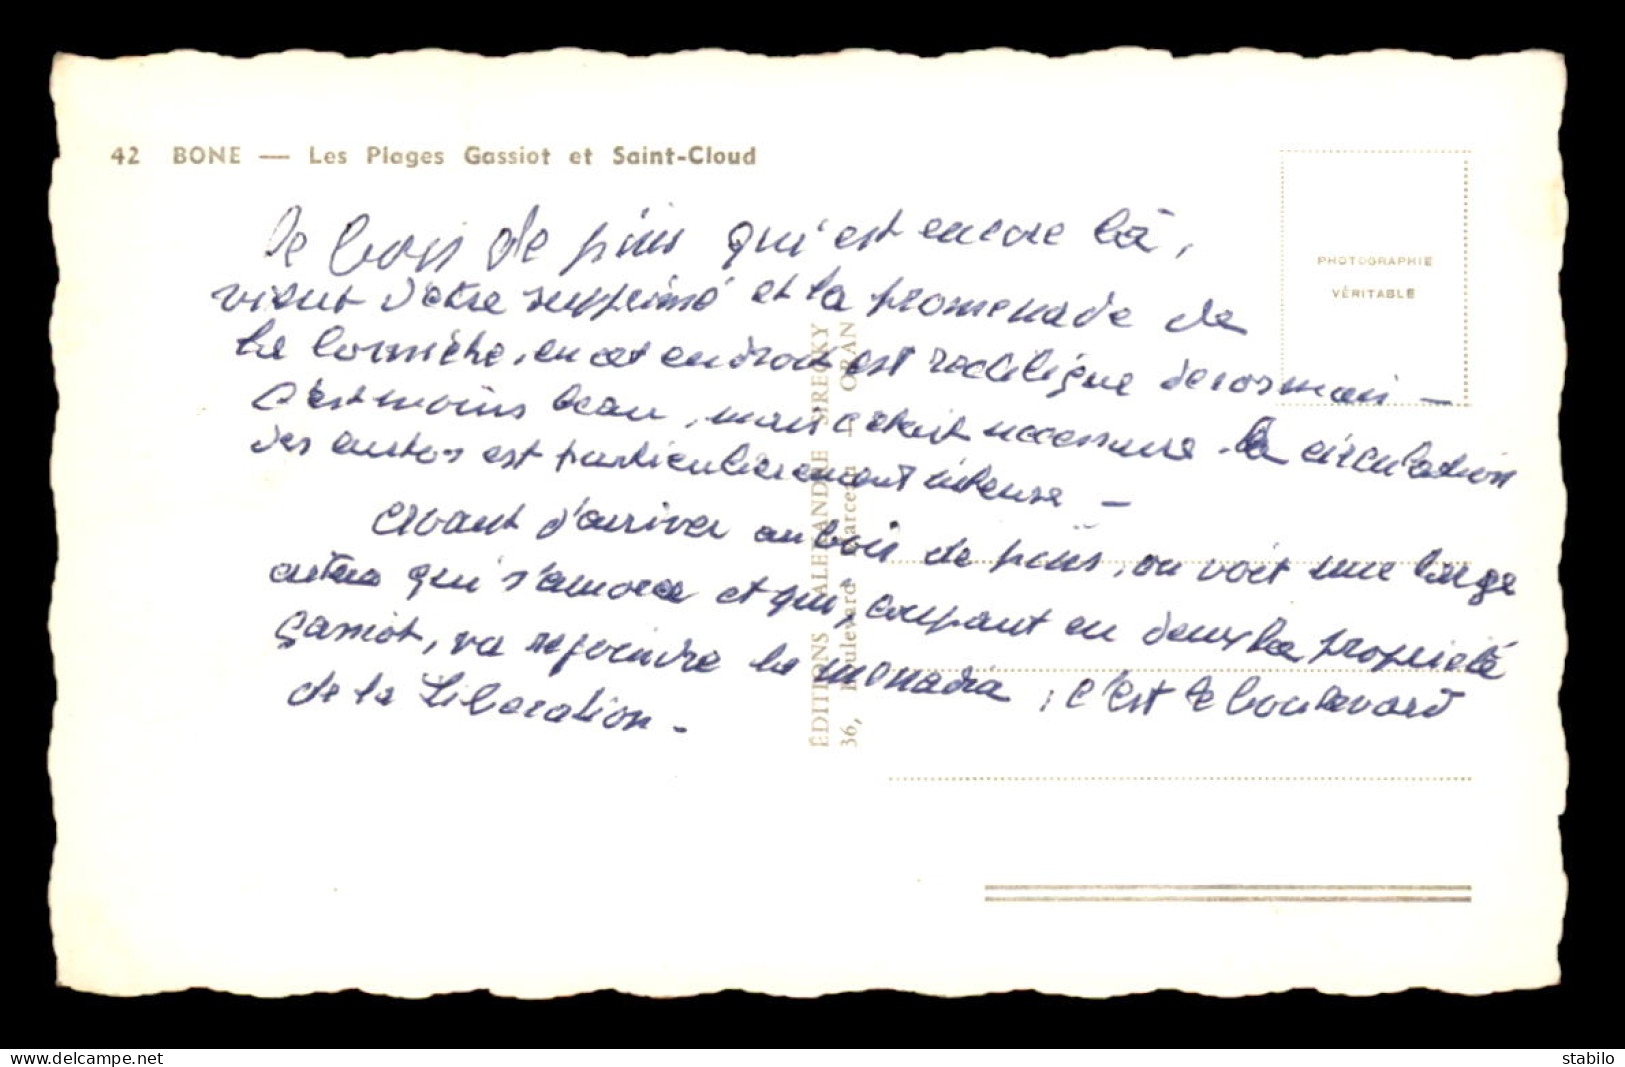 42 BONE — Les Plages Gassiot et Saint-Cloud
PHOTOGRAPHIE
VÉRITABLE
Le bois de pins qui est encore là,
vient d'être supprimé et la promenade de
la Corniche, en cet endroit est rectiligne désormais —
C'est moins beau, mais c'était nécessaire. La circulation
des autos est particulièrement intense —
Avant d'arriver au bois de pins, on voit une large
artère qui s'amorce et qui, coupant en deux la propriété
Gassiot, va rejoindre la ménadia ; c'est le boulevard
de la Libération. -
ÉDITIONS ALEXANDRE SIRECKY
36, Boulevard Marceau - ORAN
www.delcampe.net
stabilo